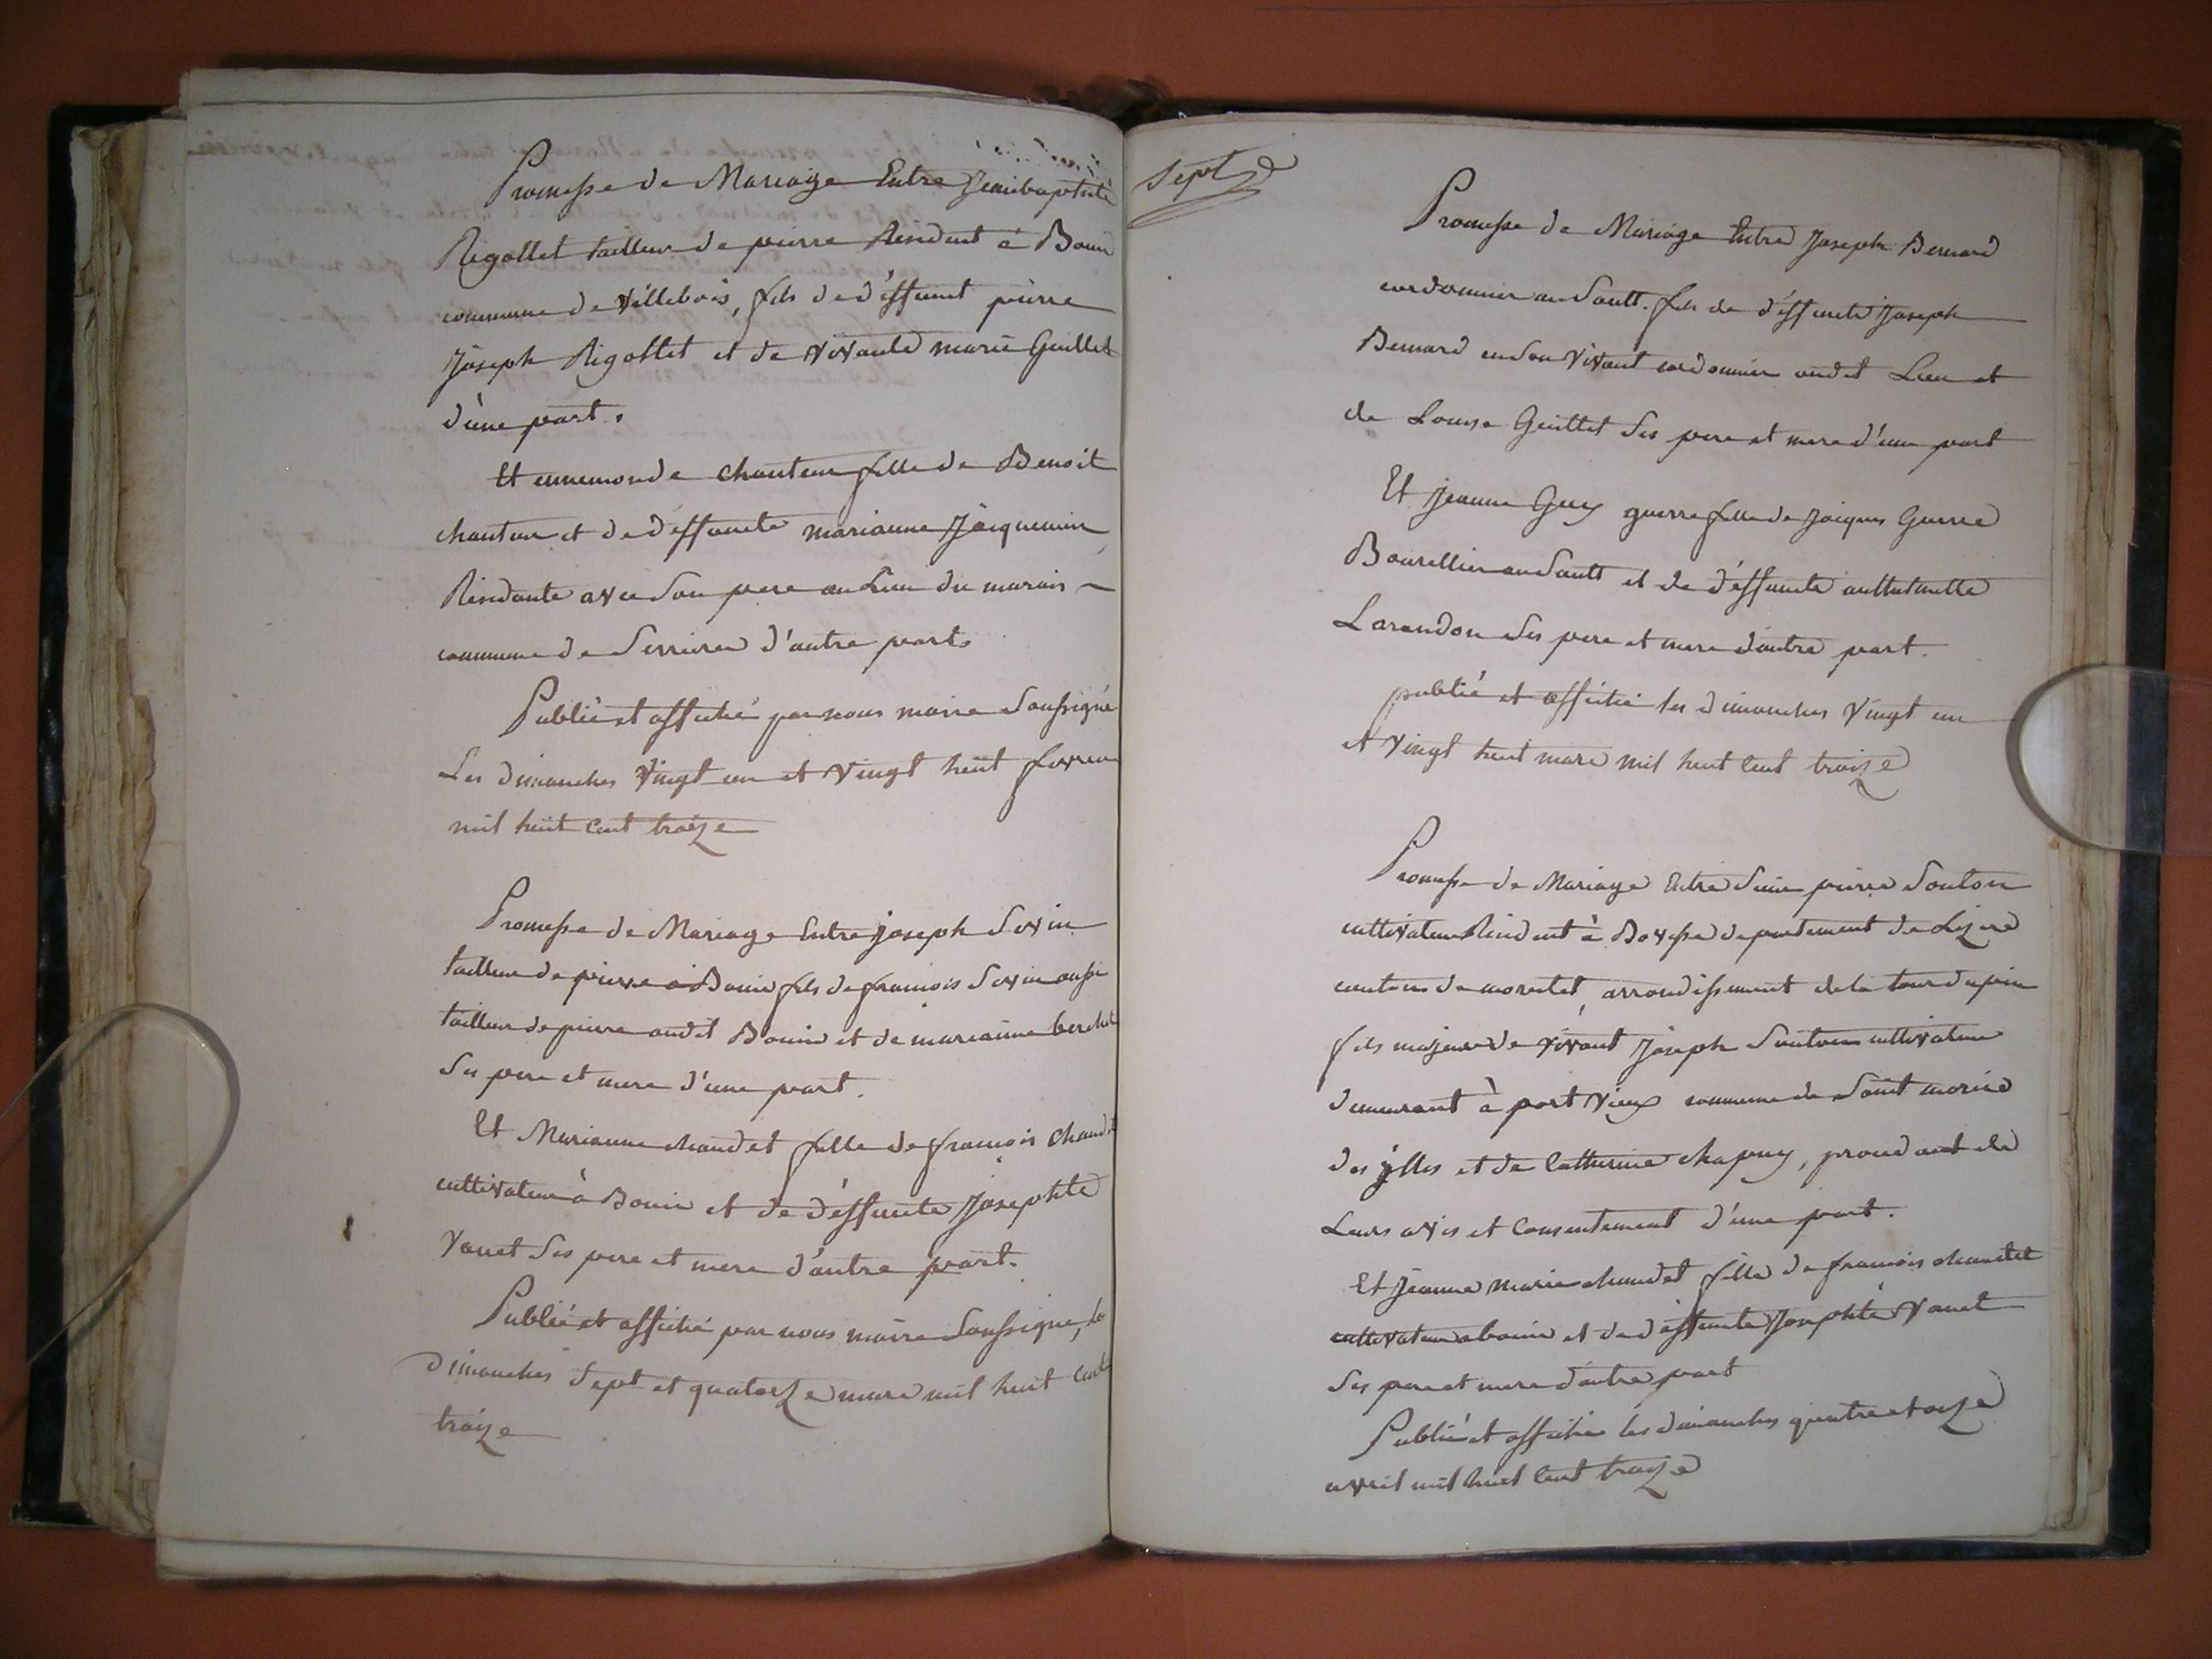 Promesse de Mariage Entre Jeanbaptiste
Rigollet tailleur de pierre Résident à Bouis
commune de Villebois, fils de déffunt pierre
Joseph Rigollet et de vivante marie Guillet
d'une part.
Et ennemonde chanteur fille de Benoit
chanteur et de déffuncte marianne Jacquemin
Résidante avec Son pere au Lieu du marais
commune de Serrieres d'autre part.
Publié et affiché par nous maire Soussigné
Les dimanches Vingt un et Vingt huit fevrier
mil huit Cent treize
Promesse de Mariage Entre joseph Sevin
tailleur de pierre à Bouis fils de francois Sevin aussi
tailleur de pierre audit Bouis et de marianne berchet
Ses pere et mere d'une part.
Et Marianne chaudet fille de francois chaudet
cultivateur à Bouis et de déffuncte Josephte
Varret Ses pere et mere d'autre part.
Publié et affiché par nous maire Soussigné, les
dimanches Sept et quatorze mars mil huit Cent
treize
Sept
Promesse de Mariage Entre Joseph Bernard
cordonnier au Sault. fils de déffunct Joseph
Bernard en Son Vivant cordonnier audit Lieu et
de Louise Guillet Ses pere et mere d'une part
Et Jeanne Guy guerre fille de Jacques Guerre
Bourellier au Sault et de déffuncte
Larandon Ses pere et mere d'autre part.
publié et affiché les dimanches Vingt un
et Vingt huit mars mil huit Cent treize
Promesse de Mariage Entre Sieur pierre Souton
cultivateur Résident à Bovesse département de Lizere
canton de morestet, arrondissement de la tour du pin
fils majeur de vivant Joseph Souton cultivateur
demeurant à port Vieux commune de Saint
des ylles et de Catherine chapuy, procedant de
Leurs avis et Consentement d'une part.
Et Jeanne marie chaudet fille de francois chaudet
cultivateur a bouis et de déffuncte Josephte Varret
Ses pere et mere d'autre part
Publié et affiché les dimanches quatre et onze
avril mil huit Cent treize